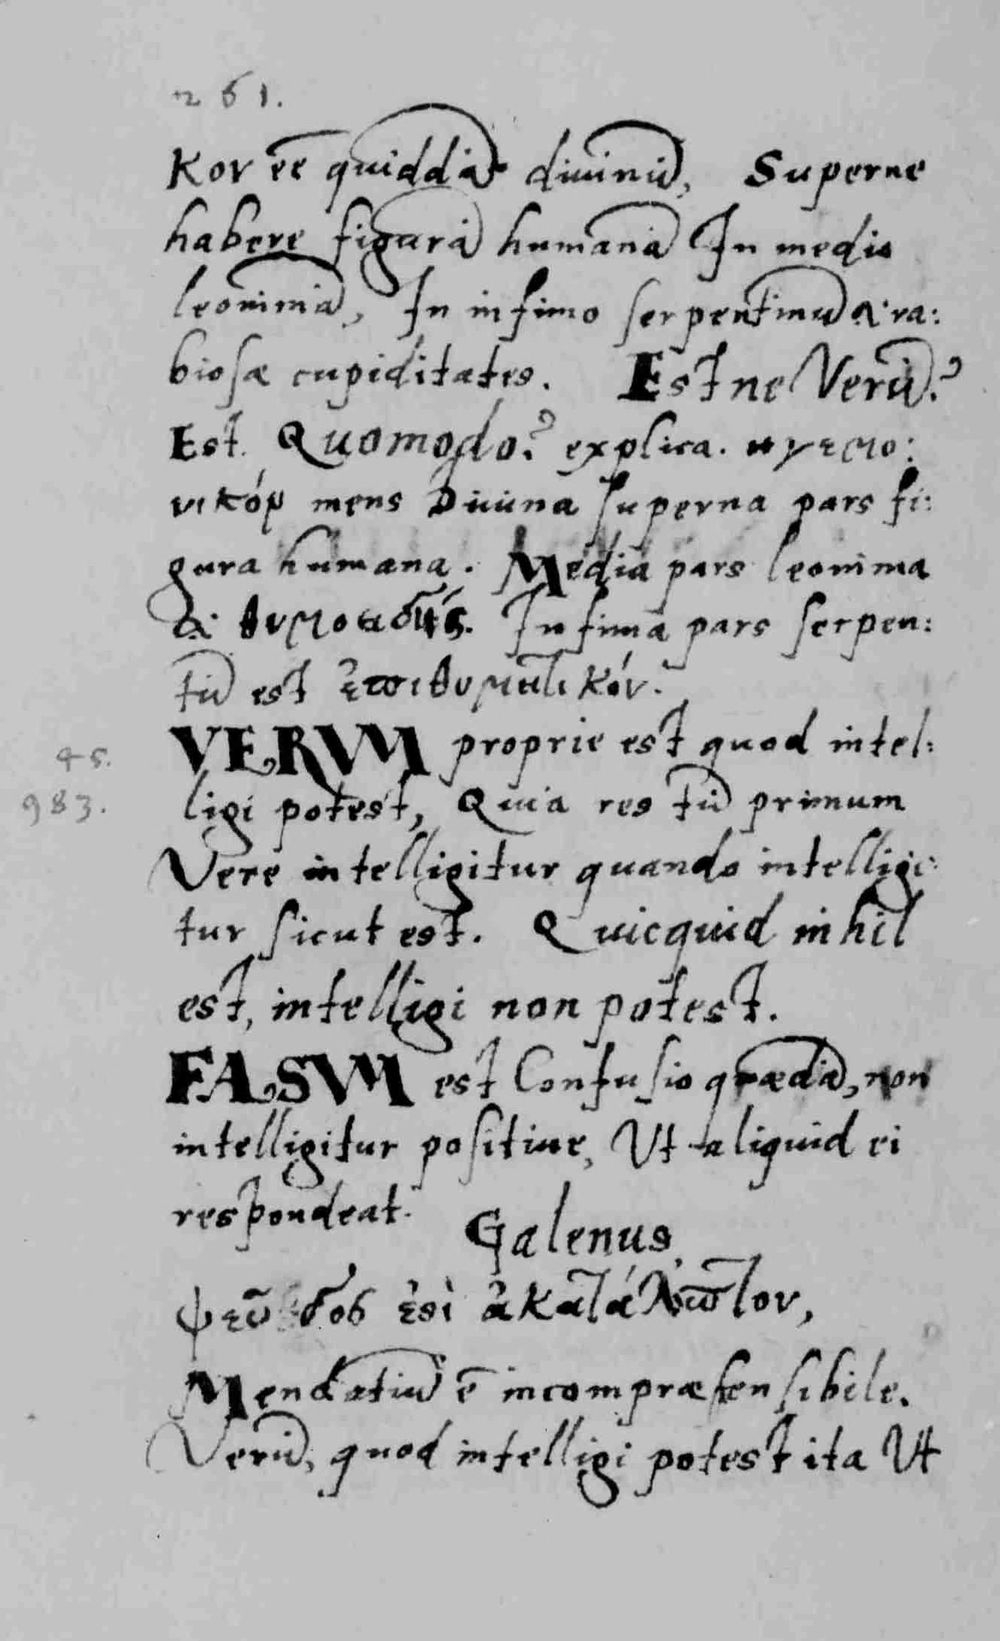 261.
κον eē quiddā diuinū, Superne
habere figurā humanā In medio
leoninā, In infimo serpentinū & ra:
biosæ cupiditates. Est ne Verū?
Est. Quomodo? explica. ηγεμο:
νικόν mens Diuina superna pars fi:
gura humana. Media pars leonina
& θυμοειδής. Infima pars serpen:
tū est ἐπιθυμητικόν.
VERVM proprie est quod intel:
45.
ligi potest, Quia res tū primum
983.
Vere intelligitur quando intelligi:
tur sicut est. Quicquid nihil
est, intelligi non potest.
FALSVM est Confusio quædā, non
intelligitur positiue, Ut aliquid ei
respondeat.
Galenus
ψεῦδος ἐστὶ ἀκατάληπτον,
Mendatiū ē incompræhensibile.
Verū, quod intelligi potest ita Ut